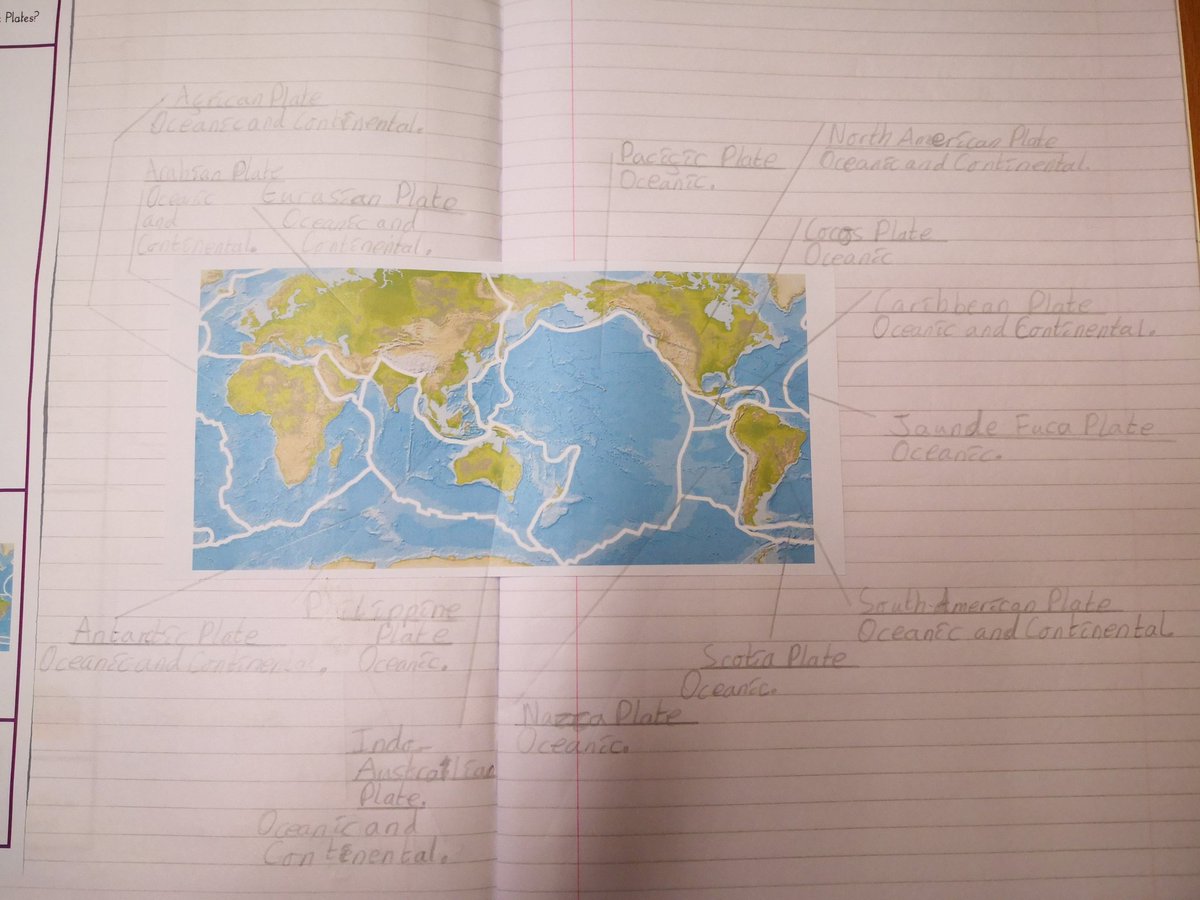 Plates?
African Plate
Oceanic and Continental.
Arabian Plate
Oceanic
and
Continental.
Eurasian Plate
Oceanic and
Continental.
Pacific Plate
Oceanic.
North American Plate
Oceanic and Continental.
Cocos Plate
Oceanic
Caribbean Plate
Oceanic and Continental.
Jaunde Fuca Plate
Oceanic.
South American Plate
Oceanic and Continental.
Scotia Plate
Oceanic.
Nazca Plate
Oceanic.
Philippine
Plate
Oceanic.
Antartic Plate
Oceanic and Continental.
Indo-
Australian
Plate.
Oceanic and
Continental.